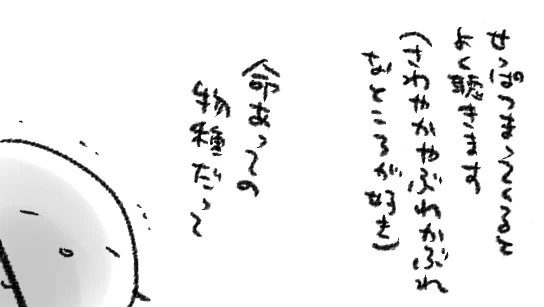 せっぱつまってくると
よく聴きます
(さわやかやぶれかぶれ
なところが好き)
命あっての
物種だって